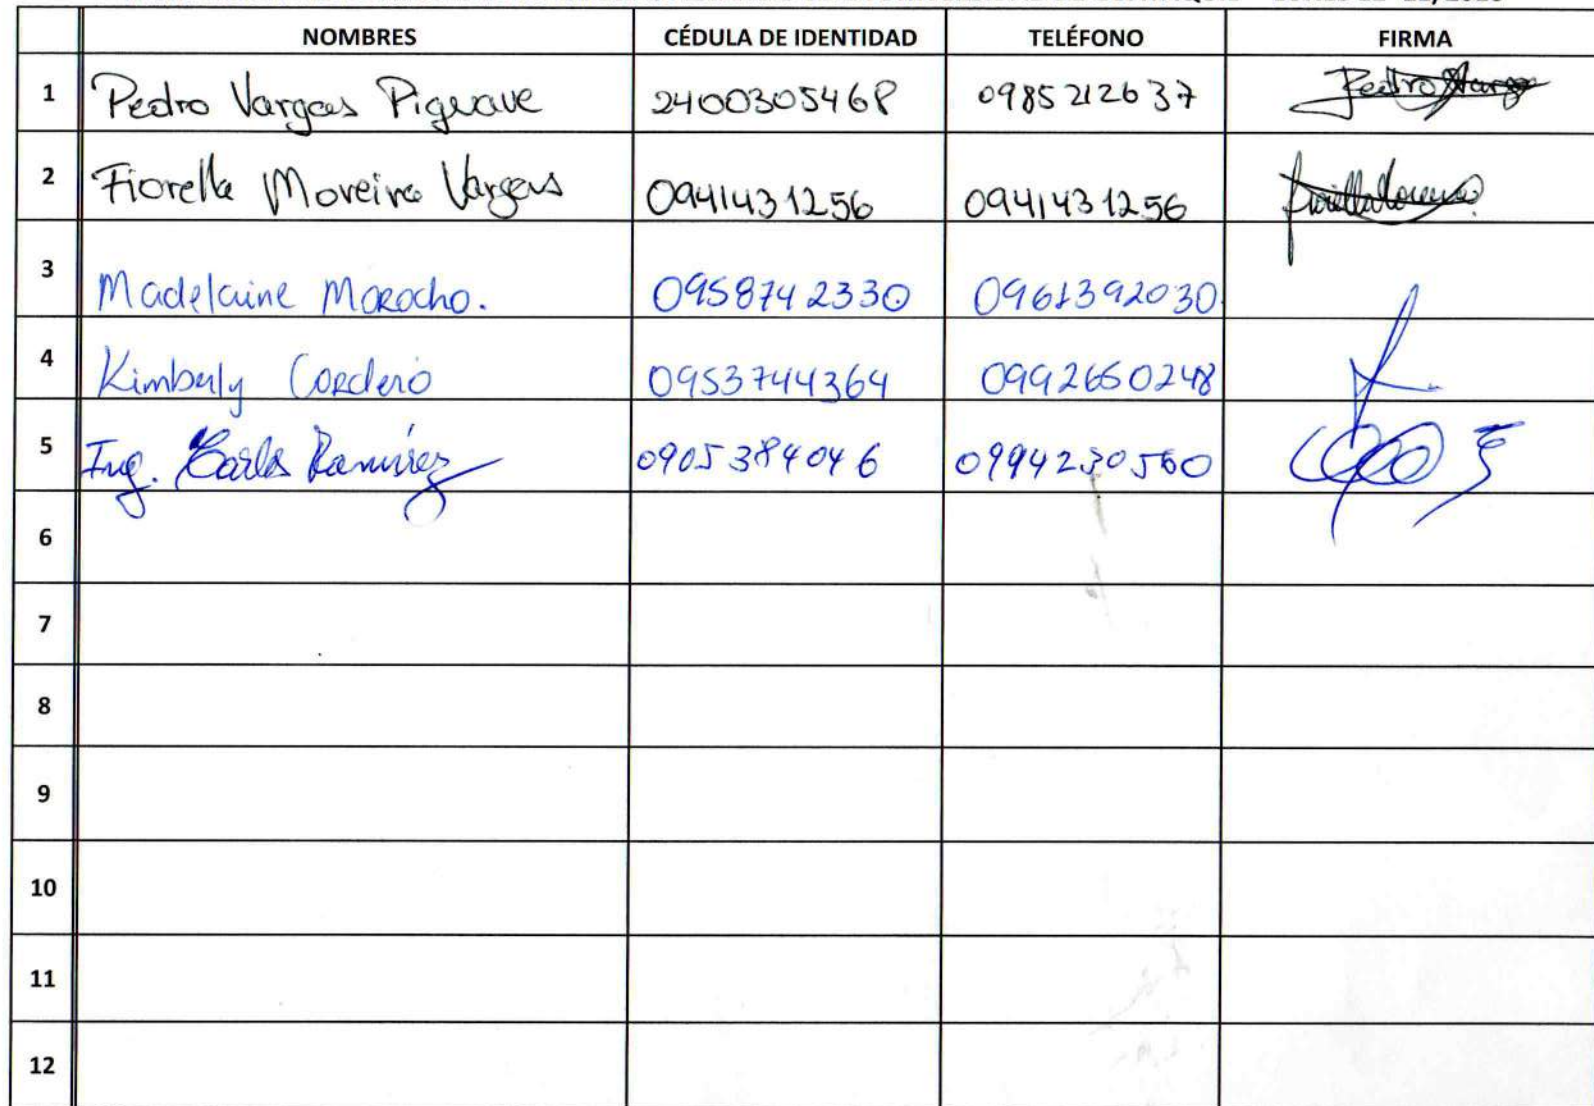 NOMBRES CÉDULA DE IDENTIDAD TELÉFONO FIRMA
1 Pedro Vargas Piguave 2400305468 0985212637 Pedro Vargas
2 Fiorella Moreira Vargas 0941431256 0941431256
3 Madelaine Morocho. 0958742330 0961392030
4 Kimberly Cordero 0953744364 0992650248
5 Ing. Carlos Ramirez 0905384046 0994230560
6
7
8
9
10
11
12